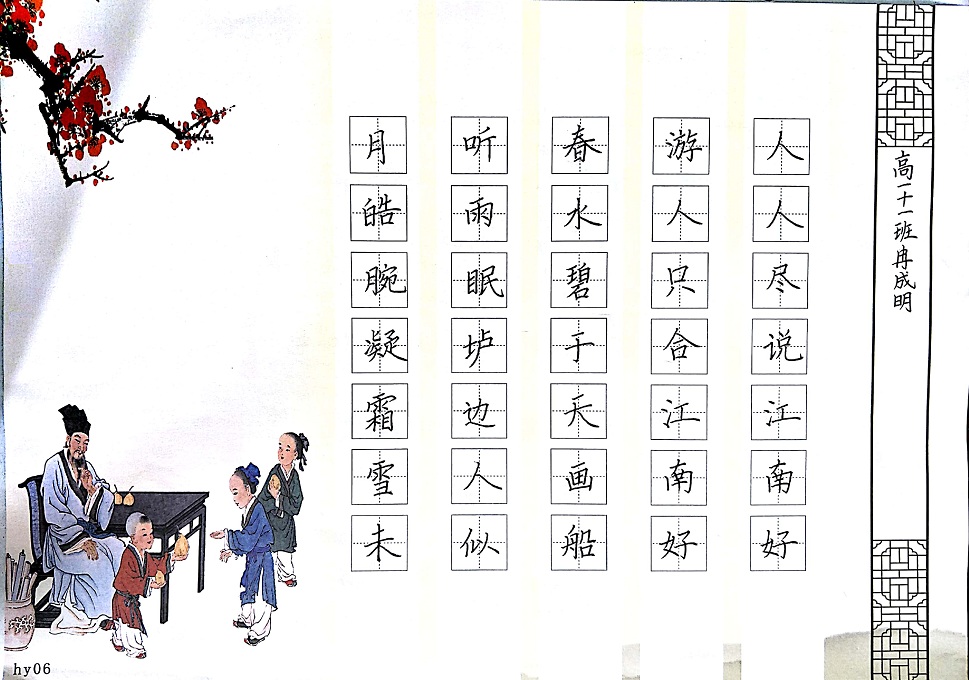 高一十一班冉成明
人人尽说江南好
游人只合江南好
春水碧于天画船
听雨眠垆边人似
月皓腕凝霜雪未
hy06